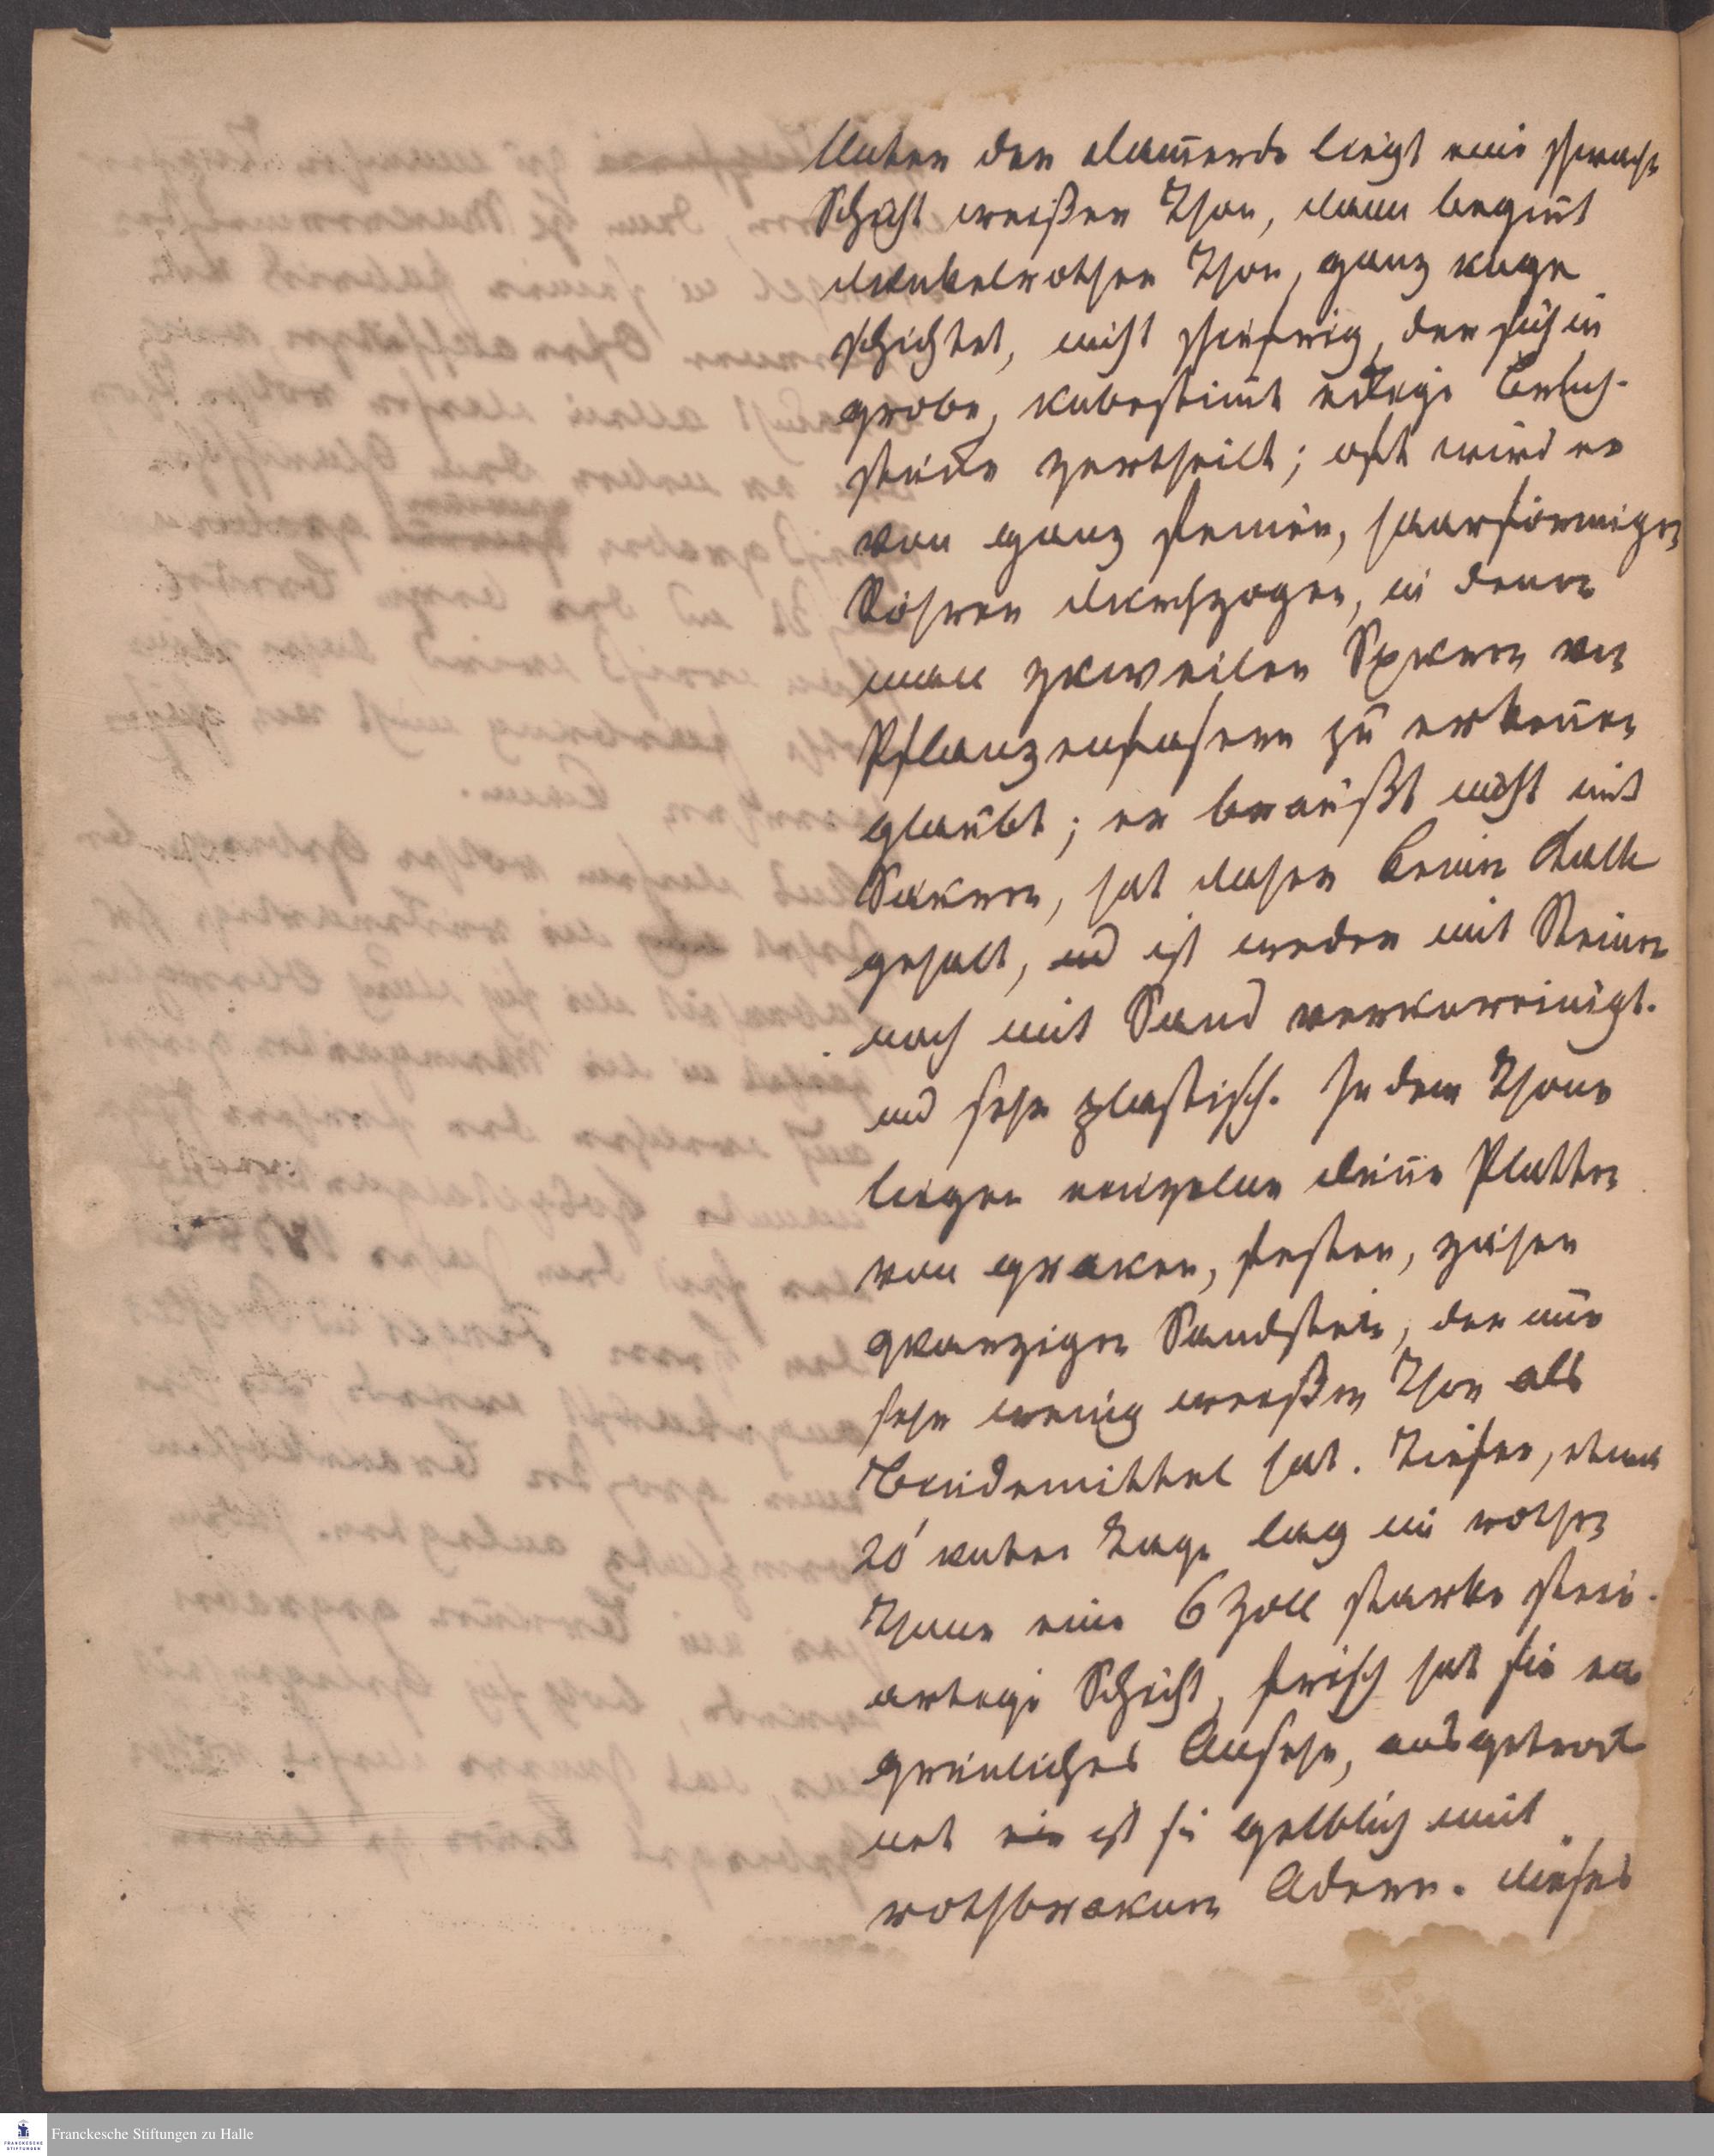 Unter der Dam̅erde liegt eine schwache
Schicht weißer Thon, dann begin̅t
dunkelrother Thon, ganz unge
schichtet, nicht schiefrig, der sich in
grobe, unbestim̅t eckige Bruch-
stücke zertheilt; oft wird er
von ganz feinen, haarförmigen
Röhren durchzogen, in denen
man zuweilen Spuren von
Pflanzenfasern zu erken̅en
glaubt; er braußt nicht mit
Säuren, hat daher keinen Kalk
gehalt, und ist weder mit Steinen
noch mit Sand verunreinigt.
und sehr plastisch. In dem Thone
liegen einzelne dün̅e Platten
von grauen, festen, zähen
quarzigen Sandstein, der nur
sehr wenig weißen Thon als
Bindemittel hat. Tiefer, etwa
20' unter Tage lag im rothen
Thone eine 6 Zoll starke stein-
artige Schicht, frisch hat sie ein
grünliches Ansehn, ausgetrock
net ist sie gelblich mit
rothbraunen Adern. Dieses
Franckesche Stiftungen zu Halle